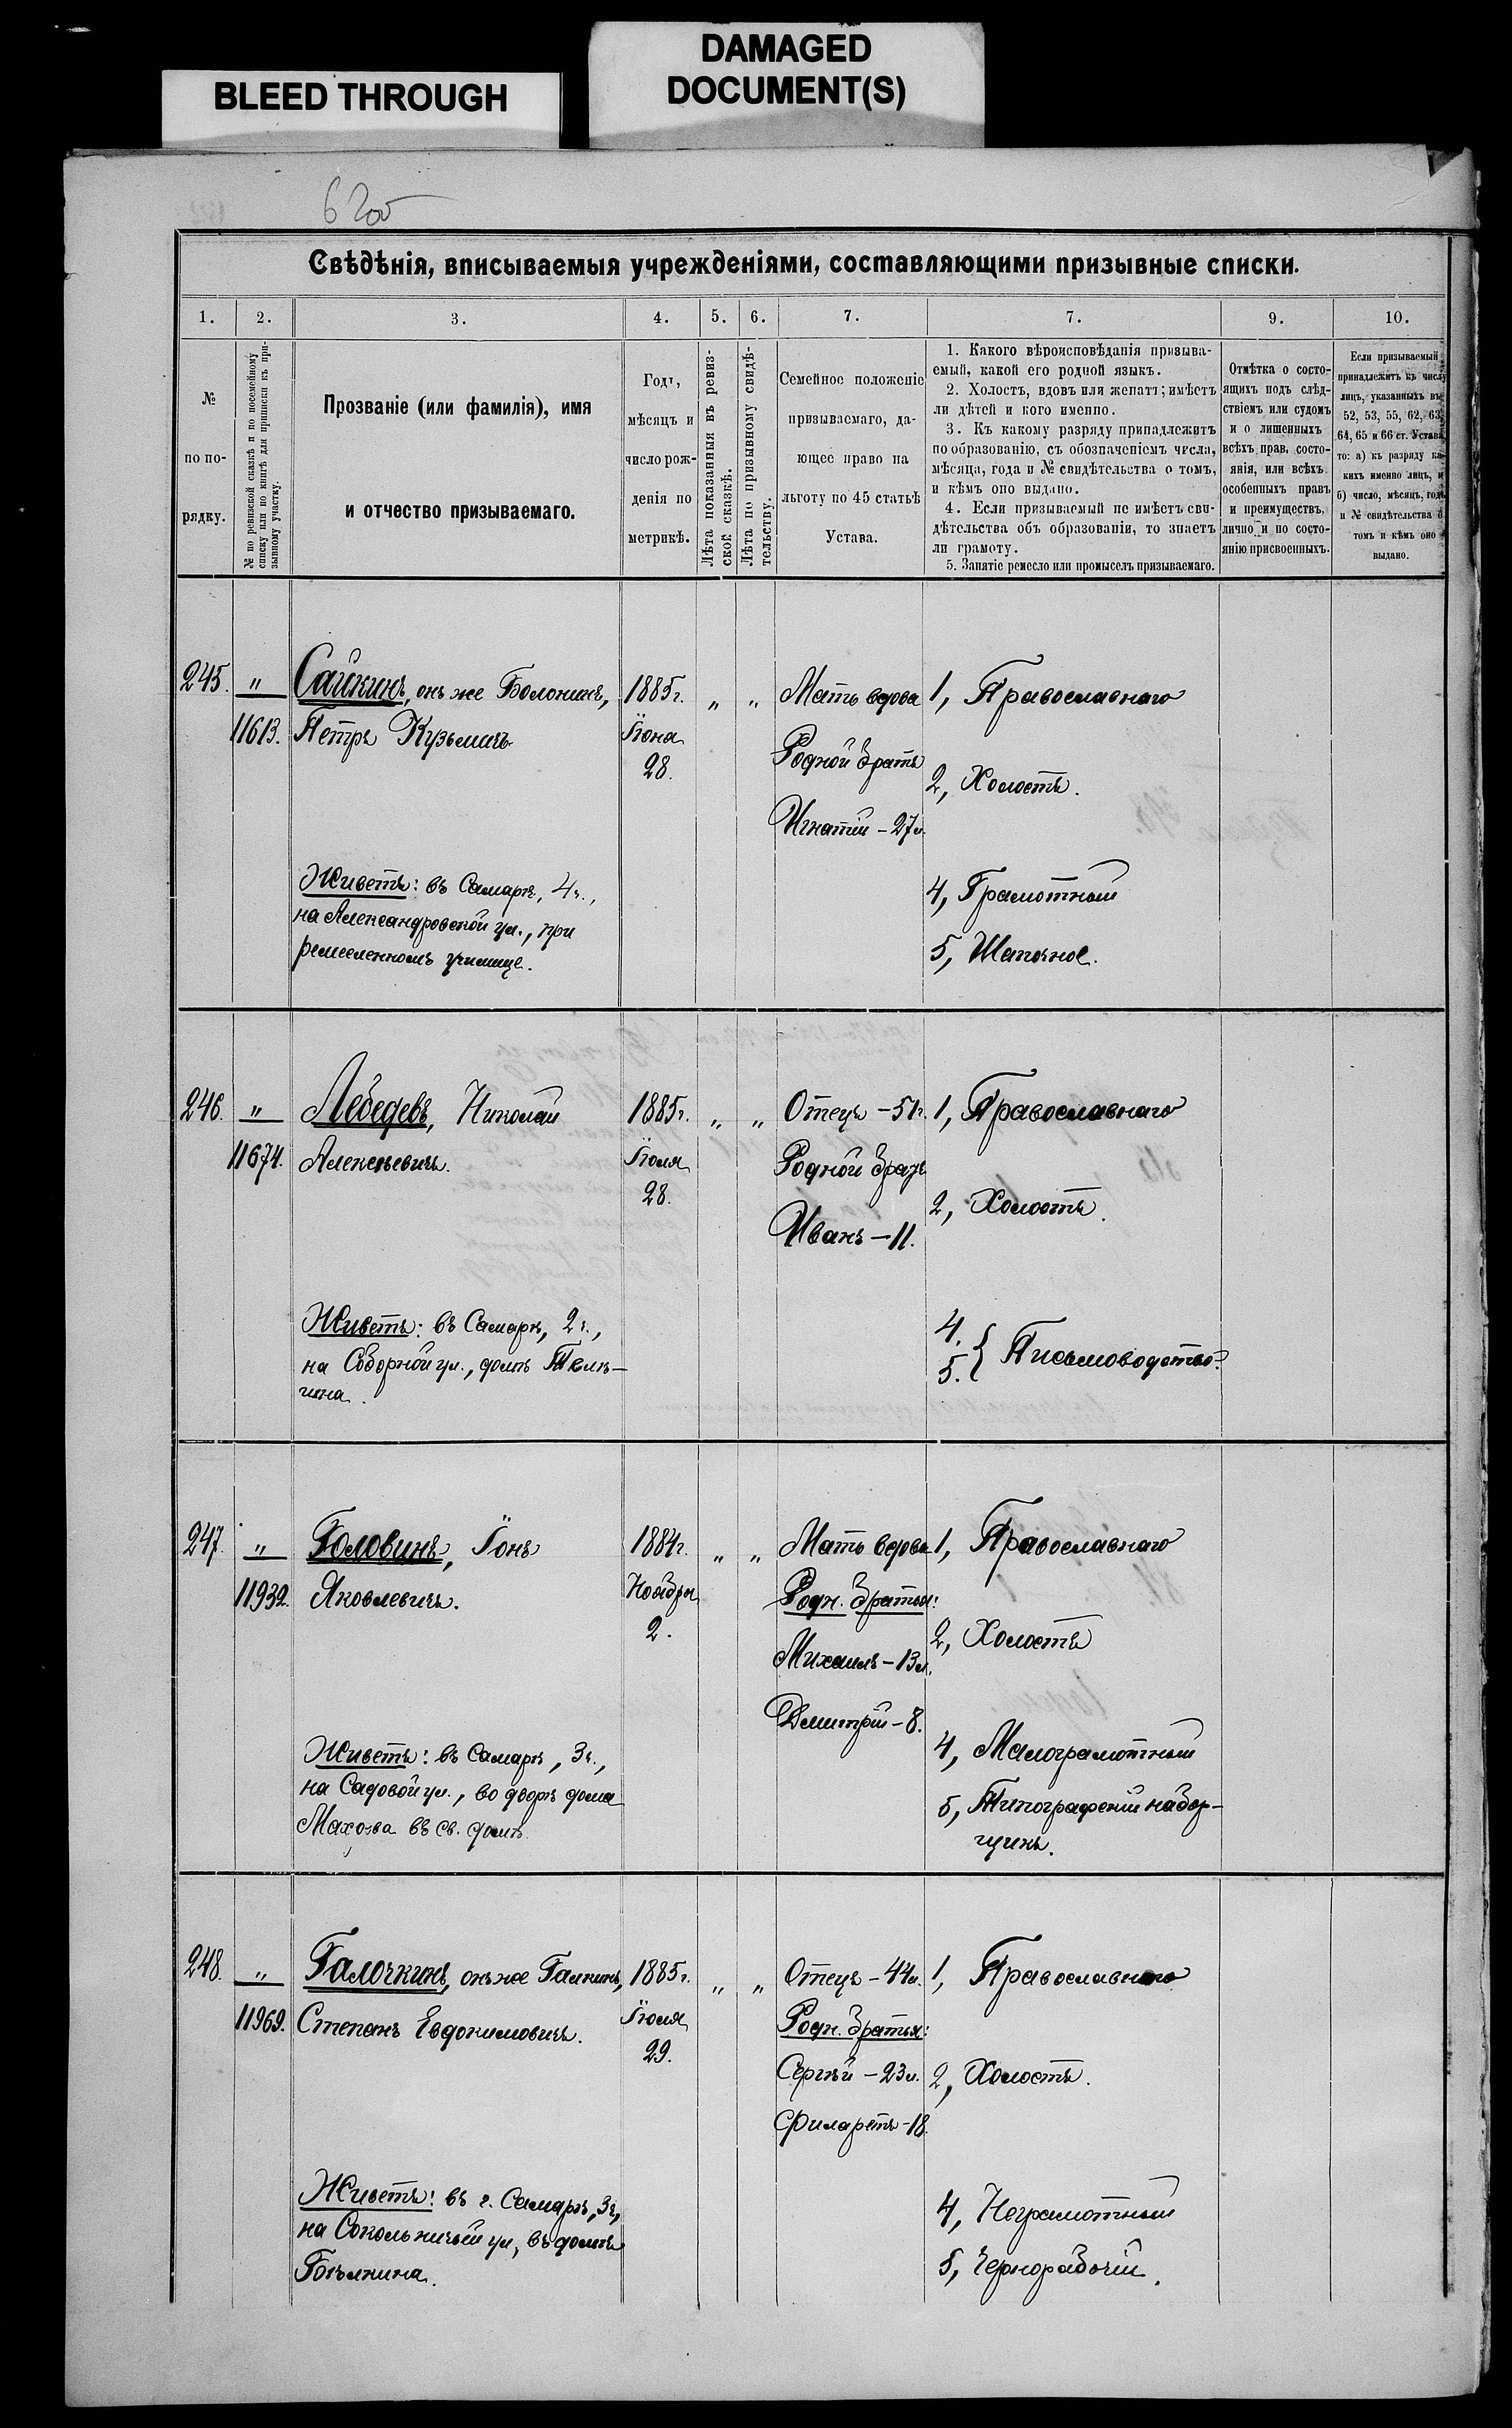 DAMAGED
DOCUMENT(S)
BLEED THROUGH
Свѣдѣнія, вписываемыя учрежденіями, составляющими призывные списки.
1. 2. 3. 4. 5. 6. 7. 7. 9. 10.
№
по по-
рядку.
№ по ревизской сказкѣ и по посемейному
списку или по книгѣ для приписки къ при-
зывному участку.
Прозваніе (или фамилія), имя
и отчество призываемаго.
Годъ,
мѣсяцъ и
число рож-
денія по
метрикѣ.
Лѣта показанныя въ ревиз-
ской сказкѣ.
Лѣта по призывному свидѣ-
тельству.
Семейное положеніе
призываемаго, да-
ющее право на
льготу по 45 статьѣ
Устава.
1. Какого вѣроисповѣданія призыва-
емый, какой его родной языкъ.
2. Холостъ, вдовъ или женатъ; имѣетъ
ли дѣтей и кого именно.
3. Къ какому разряду принадлежитъ
по образованію, съ обозначеніемъ числа,
мѣсяца, года и № свидѣтельства о томъ,
и кѣмъ оно выдано.
4. Если призываемый не имѣетъ сви-
дѣтельства объ образованіи, то знаетъ
ли грамоту.
5. Занятіе ремесло или промыселъ призываемаго.
Отмѣтка о состо-
ящихъ подъ слѣд-
ствіемъ или судомъ
и о лишенныхъ
всѣхъ прав. состо-
янія, или всѣхъ
особенныхъ правъ
и преимуществъ,
лично и по состо-
янію присвоенныхъ.
Если призываемый
принадлежитъ къ числу
лицъ, указанныхъ въ
52, 53, 55, 62, 63,
64, 65 и 66 ст. Устава,
то: а) къ разряду ка-
кихъ именно лицъ, и
б) число, мѣсяцъ, годъ
и № свидѣтельства о
томъ и кѣмъ оно
выдано.
245. "
11613.
Сайкинъ, онъ же Болонинъ,
Петръ Кузьмичъ
Живетъ: въ Самарѣ, 4ч.,
на Александровской ул., при
ремесленномъ училище.
1885г.
Іюна
28.
" "
Мать вдова
Родной братъ
Игнатій - 27л.
1, Православнаго
2, Холостъ.
4, Грамотный
5, Шапочное.
246. "
11674.
Лебедевъ, Николай
Алексѣевичъ.
Живетъ: въ Самарѣ, 2ч.,
на Соборной ул., домъ Телѣ-
гина.
1885г.
Іюля
28.
" "
Отецъ - 51г.
Родной братъ
Иванъ - 11.
1, Православнаго
2, Холостъ.
4.
5. } Письмоводство.
247. "
11932.
Головинъ, Іонъ
Яковлевичъ.
Живетъ: въ Самарѣ, 3ч.,
на Садовой ул., во дворѣ дома
въ св. домѣ.
1884г.
Ноября
2.
" "
Мать вдова
Родн. братья:
Михаилъ - 13л.
Дмитрій - 8.
1, Православнаго
2, Холостъ
4, Малограмотный
5, Типографскій набор-
щикъ.
248. "
11969.
Галочкинъ, онъ же Галкинъ,
Степанъ Евдокимовичъ.
Живетъ: въ г. Самарѣ, 3ч,
на Сокольничьей ул, въ домѣ
1885г.
Іюля
29.
" "
Отецъ - 44л.
Родн. братья:
Сергѣй - 23л.
Филаретъ - 18.
1, Православнаго
2, Холостъ.
4, Неграмотный
5, Чернорабочій.